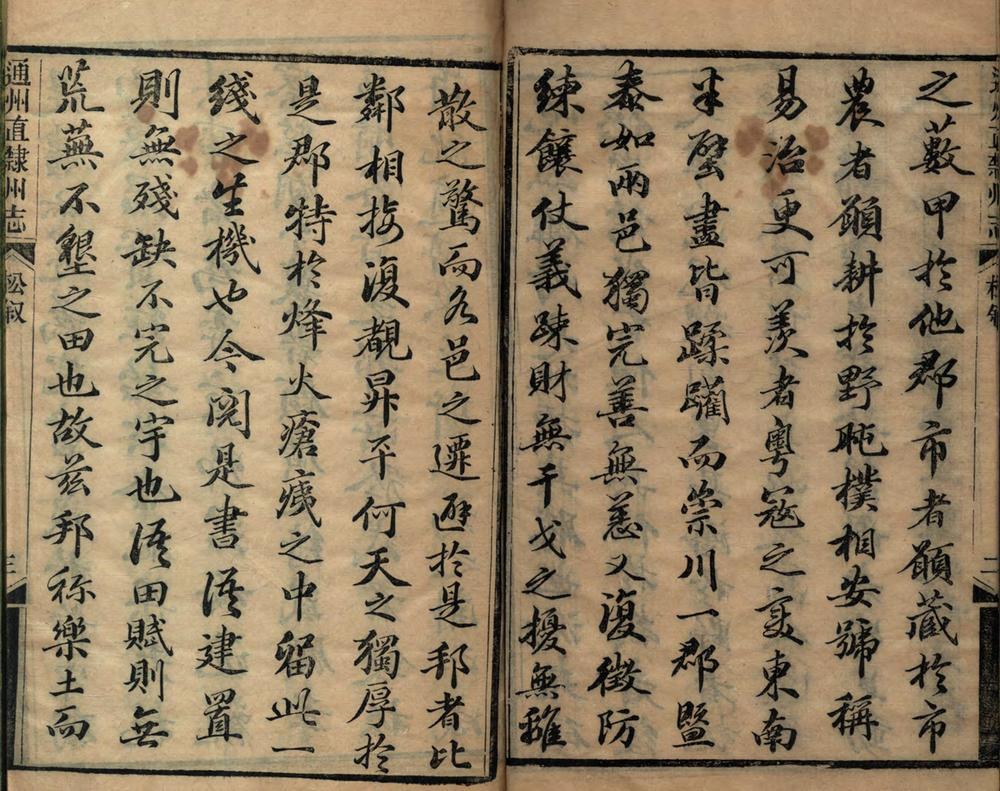 之藪甲於他郡市者願藏於市
農者願耕於野氓樸相安號稱
易治更可羨者粵寇之變東南
半壁盡皆蹂躪而崇川一郡暨
泰如兩邑獨完善無恙又復徵防
練饟仗義疎財無干戈之擾無離
散之驚而各邑之遷避於是邦者比
鄰相接復覩昇平何天之獨厚於
是郡特於烽火瘡痍之中留此一
綫之生機也今閱是書語建置
則無殘缺不完之宇也語田賦則無
荒蕪不墾之田也故茲邦称樂土而
通州直隸州志
三